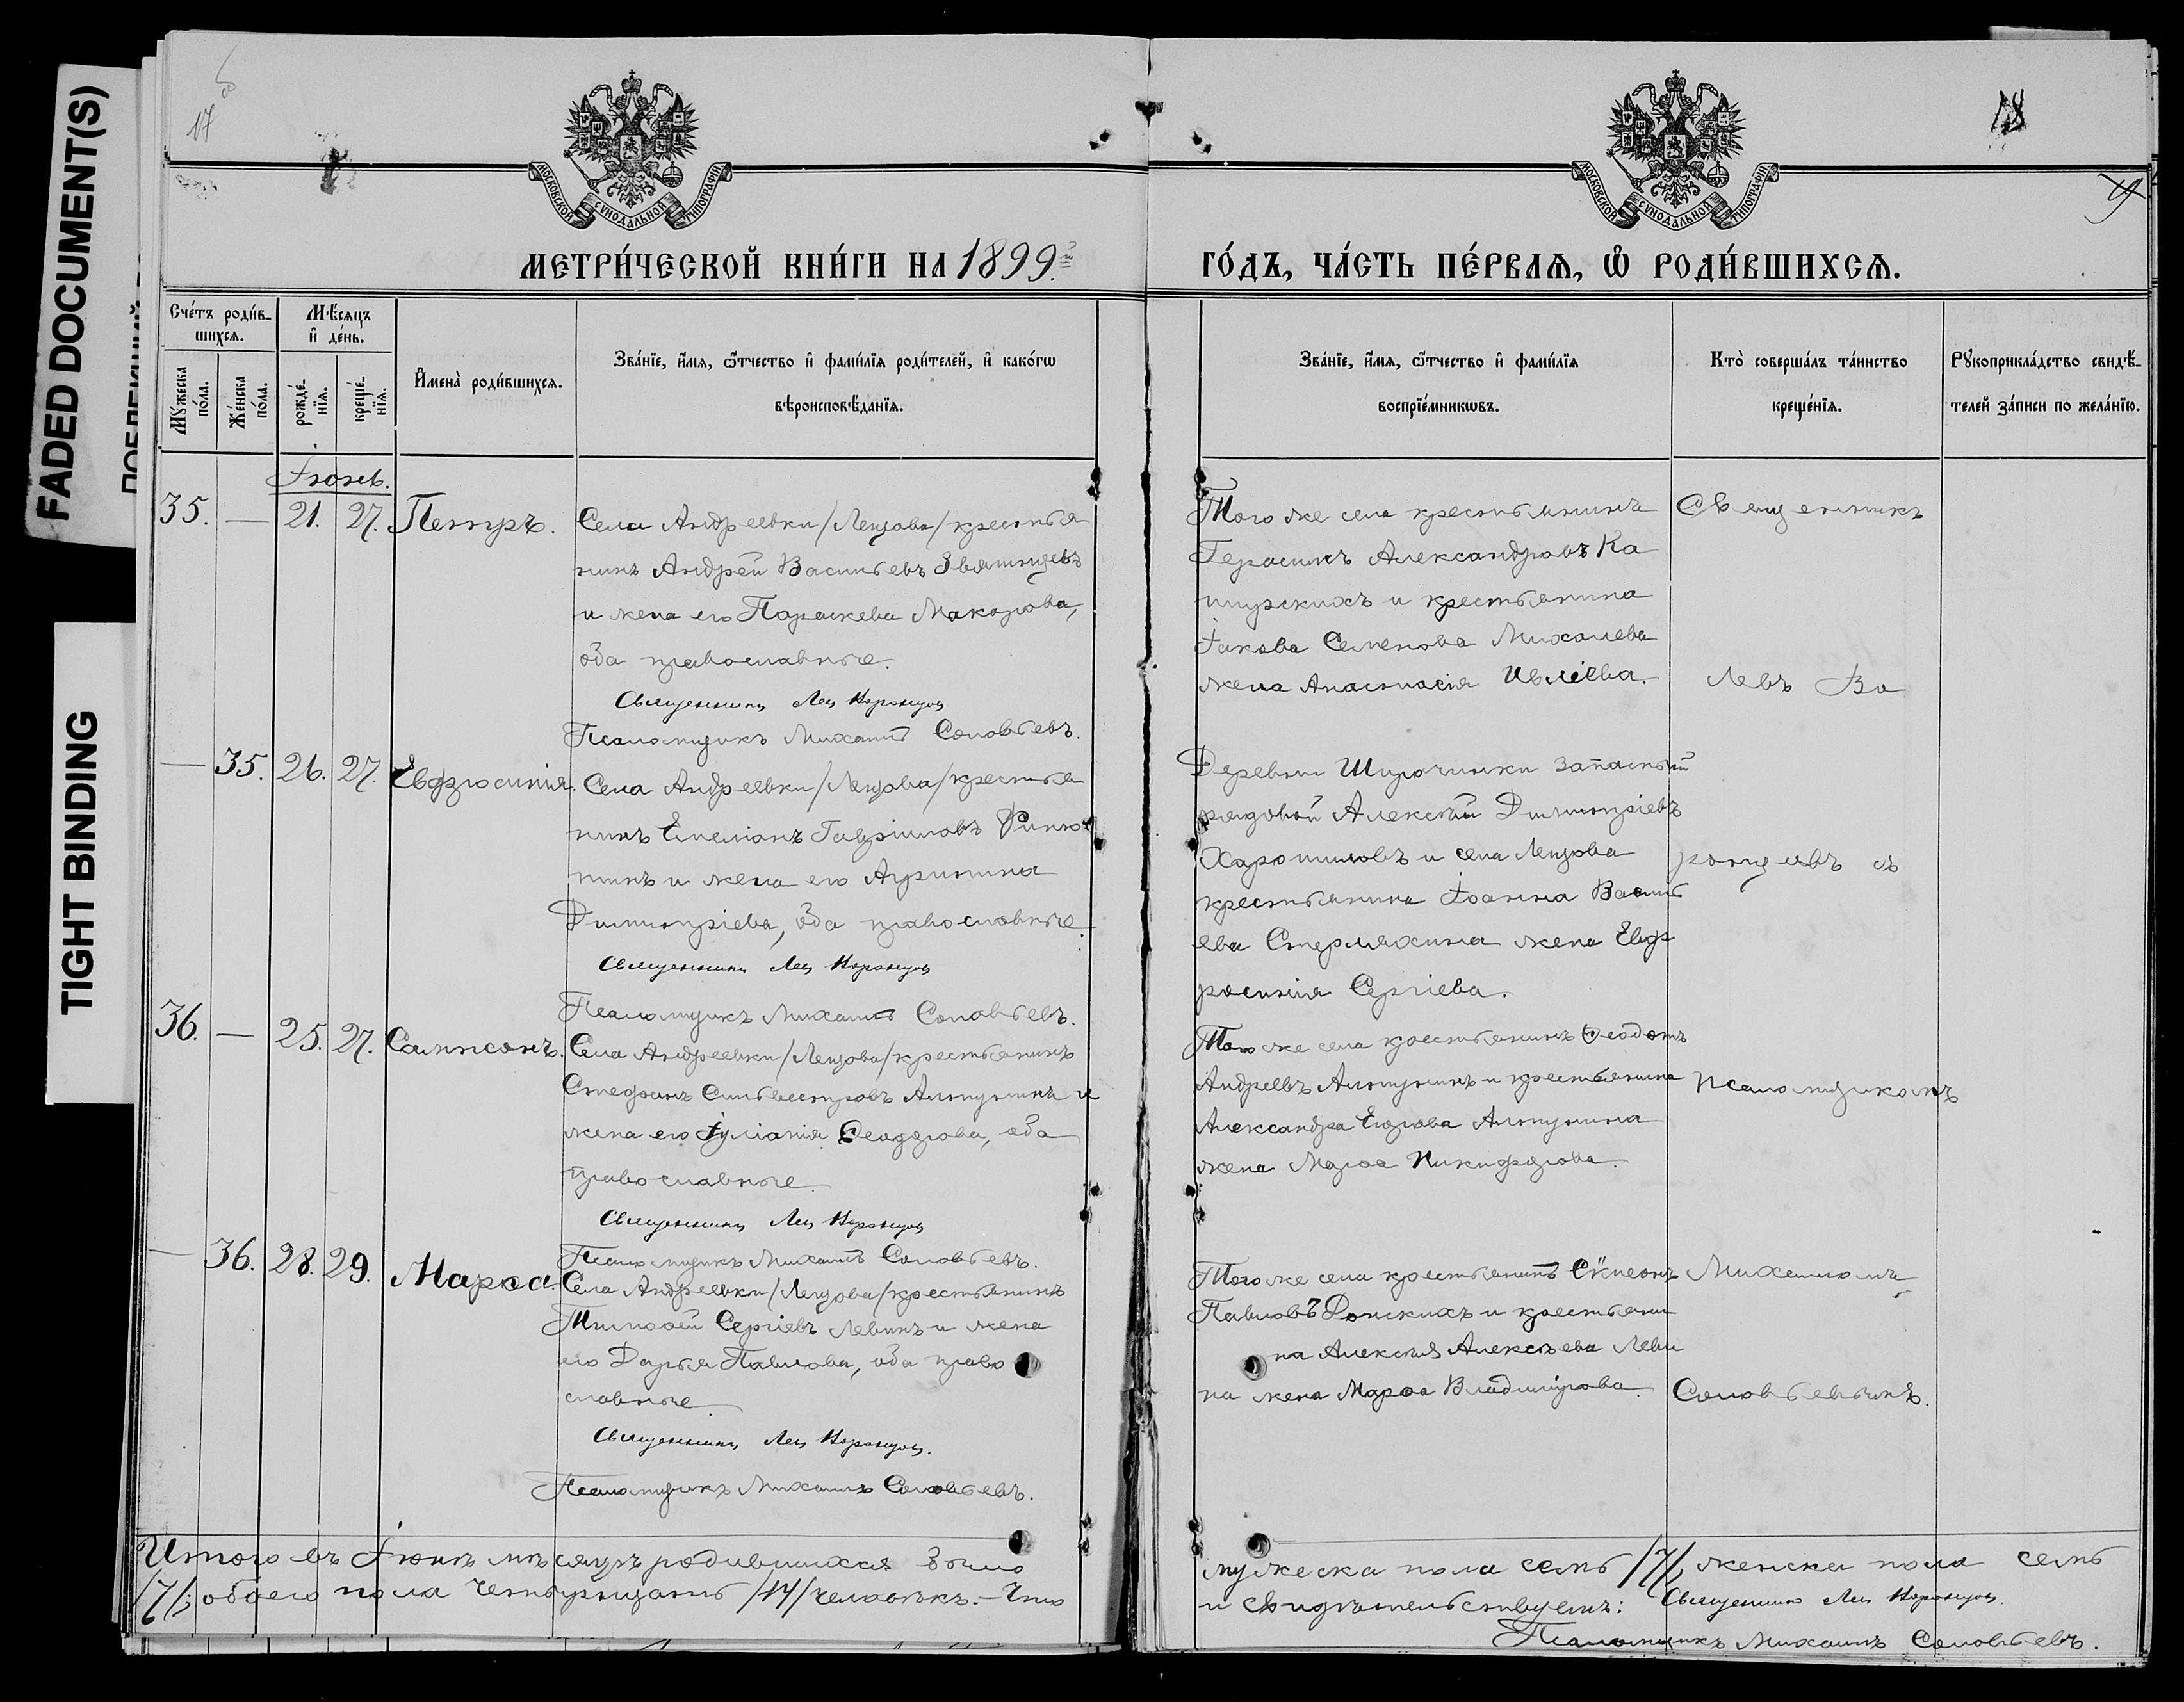 FADED DOCUMENT(S)
TIGHT BINDING
17
18
МОСКОВСКОЙ СѴНОДАЛЬНОЙ ТИПОГРАФІИ
МОСКОВСКОЙ СѴНОДАЛЬНОЙ ТИПОГРАФІИ
МЕТРИ́ЧЕСКОЙ КНИ́ГИ НА 1899й
ГО́ДЪ, ЧА́СТЬ ПЕ́РВАѦ, Ѽ РОДИ́ВШИХСѦ.
Сче́тъ роди́в-
шихсѧ.
Мꙋ́жеска
по́ла.
Же́нска
по́ла.
Мѣ́сѧцъ
и҆ де́нь.
рожде́-
нїѧ.
креще́-
нїѧ.
И҆мена̀ роди́вшихсѧ.
Зва́нїе, и҆́мѧ, ѻ҆́тчество и҆ фамі́лїѧ роди́телей, и҆ како́гѡ
вѣроисповѣ́данїѧ.
Зва́нїе, и҆́мѧ, ѻ҆́тчество и҆ фамі́лїѧ
воспрїе́мникѡвъ.
Кто̀ соверша́лъ та́инство
креще́нїѧ.
Рꙋкоприкла́дство свидѣ́-
телей за́писи по жела́нїю.
Іюнь.
35. — 21. 27. Петръ.
Села Андреевки /Лещова/ крестья
нинъ Андрей Васильевъ Звягинцевъ
и жена его Параскева Макарова,
оба православные.
Священникъ Левъ Воронцов
Псаломщикъ Михаилъ Соловьевъ.
Того же села крестьянинъ
Герасимъ Александровъ Ка
ширскихъ и крестьянина
Іакова Семенова Михалева
жена Анастасія Ивліева.
— 35. 26. 27. Евфросинія.
Села Андреевки /Лещова/ крестья
нинъ Емеліанъ Гавріиловъ Финю
шинъ и жена его Агрипина
Димитріева, оба православные.
Священникъ Левъ Воронцов
Псаломщикъ Михаилъ Соловьевъ.
Деревни Широчинки запасный
рядовой Алексѣй Димитріевъ
Харошиловъ и села Лещова
крестьянина Іоанна Василь
ева Стерляхина жена Евф
росинія Сергіева.
36. — 25. 27. Сампсонъ.
Села Андреевки /Лещова/ крестьянинъ
Стефанъ Сильвестровъ Алтунинъ и
жена его Іуліанія Ѳеодорова, оба
православные.
Священникъ Левъ Воронцов
Псаломщикъ Михаилъ Соловьевъ.
Того же села крестьянинъ Ѳеодотъ
Андреевъ Алтунинъ и крестьянина
Александра Егорова Алтунина
жена Марѳа Никифорова.
— 36. 28. 29. Марѳа.
Села Андреевки /Лещова/ крестьянинъ
Тимоѳей Сергіевъ Левинъ и жена
его Дарья Павлова, оба право
славные.
Священникъ Левъ Воронцов.
Псаломщикъ Михаилъ Соловьевъ.
Того же села крестьянинъ Сѵмеонъ
Павловъ Донскихъ и крестьяни
на Алексѣя Алексѣева Леви
на жена Марѳа Владимірова.
Священникъ
Левъ Во
ронцовъ съ
псаломщикомъ
Михаиломъ
Соловьевымъ.
Итого въ Іюнѣ мѣсяцѣ родившихся было
мужеска пола семь /7/, женска пола семь
/7/; обоего пола четырнадцать /14/ человѣкъ. — Что
и свидѣтельствуемъ: Священникъ Левъ Воронцов.
Псаломщикъ Михаилъ Соловьевъ.